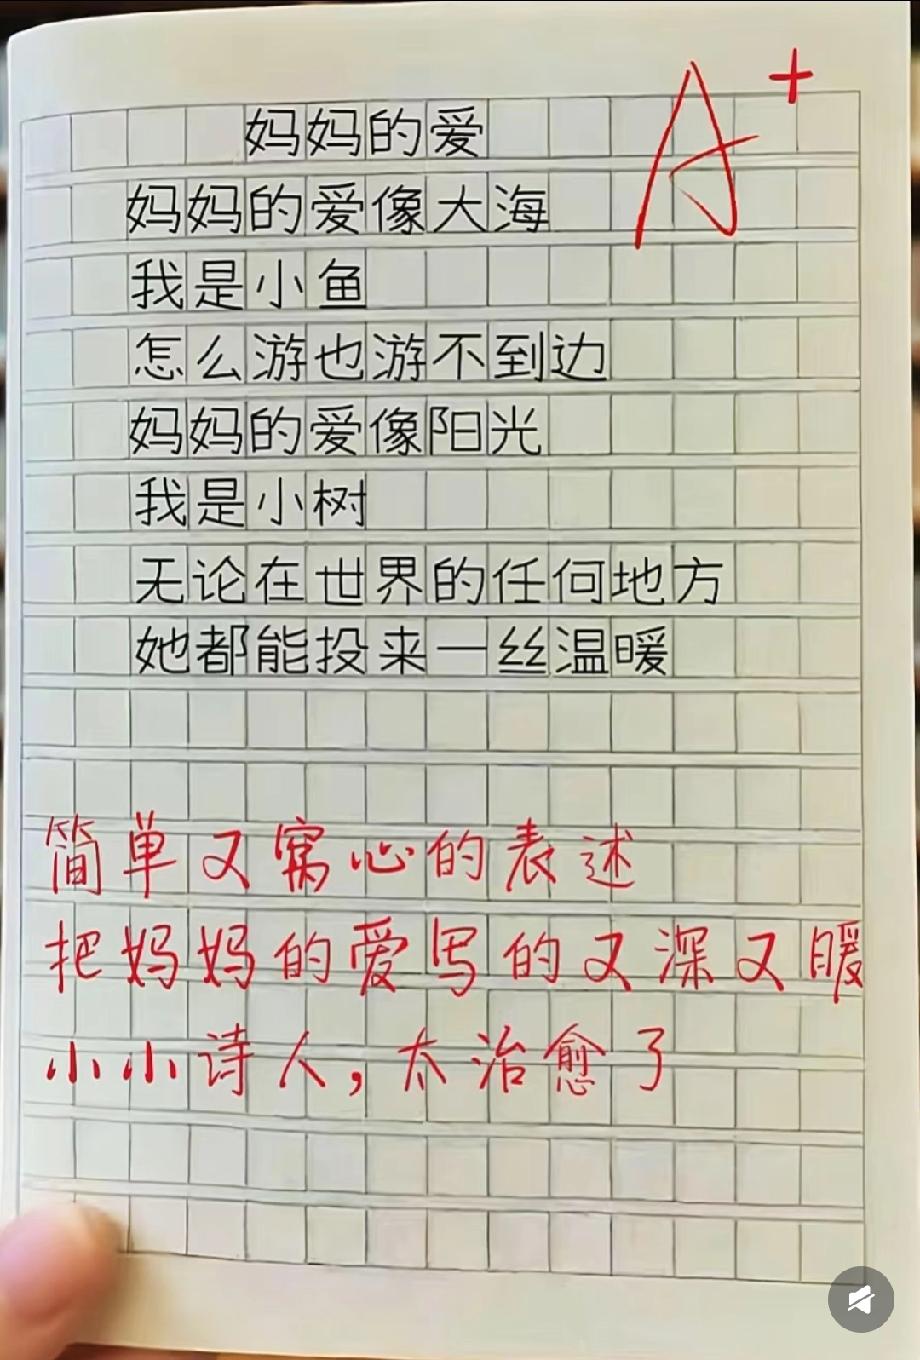 A+
妈妈的爱
妈妈的爱像大海
我是小鱼
怎么游也游不到边
妈妈的爱像阳光
我是小树
无论在世界的任何地方
她都能投来一丝温暖
简单又窝心的表述
把妈妈的爱写的又深又暖
小小诗人,太治愈了